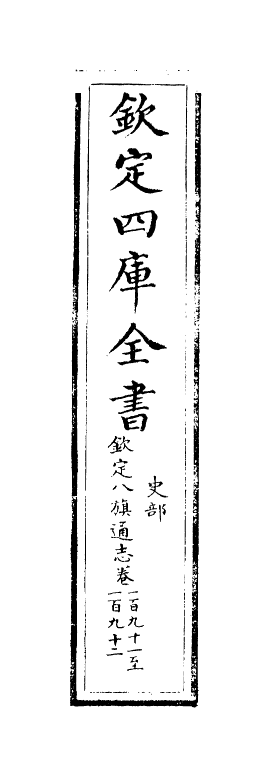 欽定四庫全書
史部
欽定八旗通志卷
一百九十一至
一百九十二